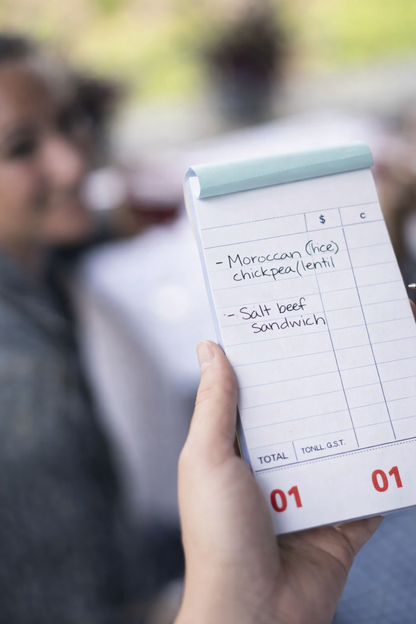 $ C
- Moroccan (rice)
chickpea/lentil
- Salt beef
sandwich
TOTAL TONLL G.S.T.
01 01